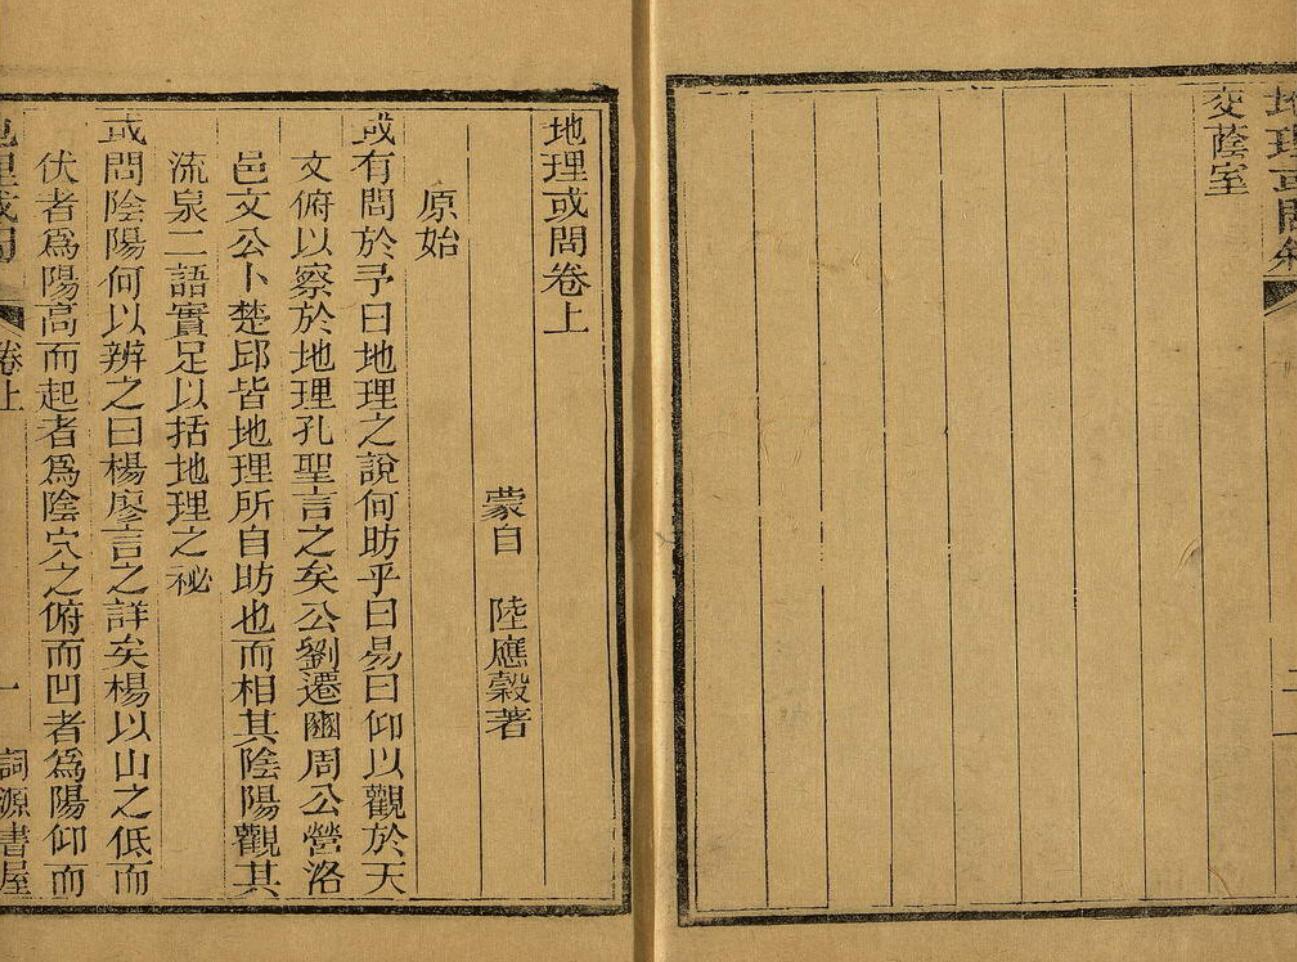 地理或問敘
二
交蔭室
地理或問卷上
蒙自 陸應穀著
原始
或有問於予曰地理之說何昉乎曰易曰仰以觀於天
文俯以察於地理孔聖言之矣公劉遷豳周公營洛
邑文公卜楚邱皆地理所自昉也而相其陰陽觀其
流泉二語實足以括地理之祕
或問陰陽何以辨之曰楊廖言之詳矣楊以山之低而
伏者爲陽高而起者爲陰穴之俯而凹者爲陽仰而
地理或問
卷上
一
詞源書屋